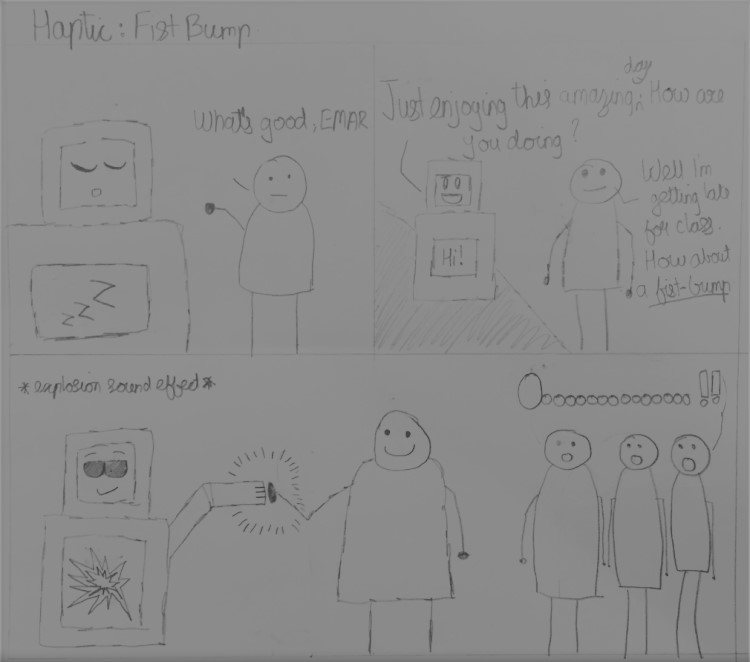 Haptic: Fist Bump
What's good, EMAR
zzz
day
Just enjoying this amazing, How are
you doing?
Hi!
Well I'm
getting late
for class.
How about
a fist-bump
*explosion sound effect*
Ooooooooooooooo!!